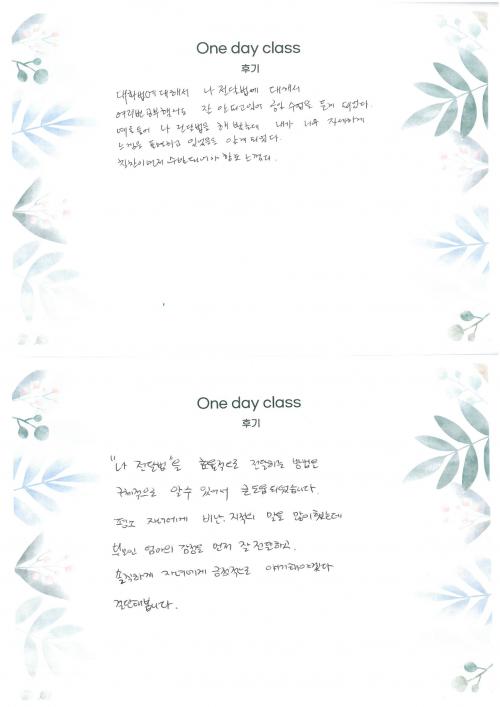 One day class
후기
대화법에 대해서 나 전달법에 대해서
여러번 공부했어도 잘 안되고있어 금일 수업을 듣게 되었다.
예를들어 나 전달법을 해 봤는데 내가 너무 자세하게
느낌을 표현하고 있었음을 알게 되었다.
칭찬이 먼저 수반되어야 함도 느꼈다.
One day class
후기
"나 전달법"을 효율적으로 전달하는 방법을
구체적으로 알 수 있어서 큰 도움되었습니다.
평소 자녀에게 비난, 지적의 말을 많이 했는데
부모인 엄마의 감정을 먼저 잘 전환하고,
솔직하게 자녀에게 긍정적으로 얘기해야겠다
다짐해봅니다.